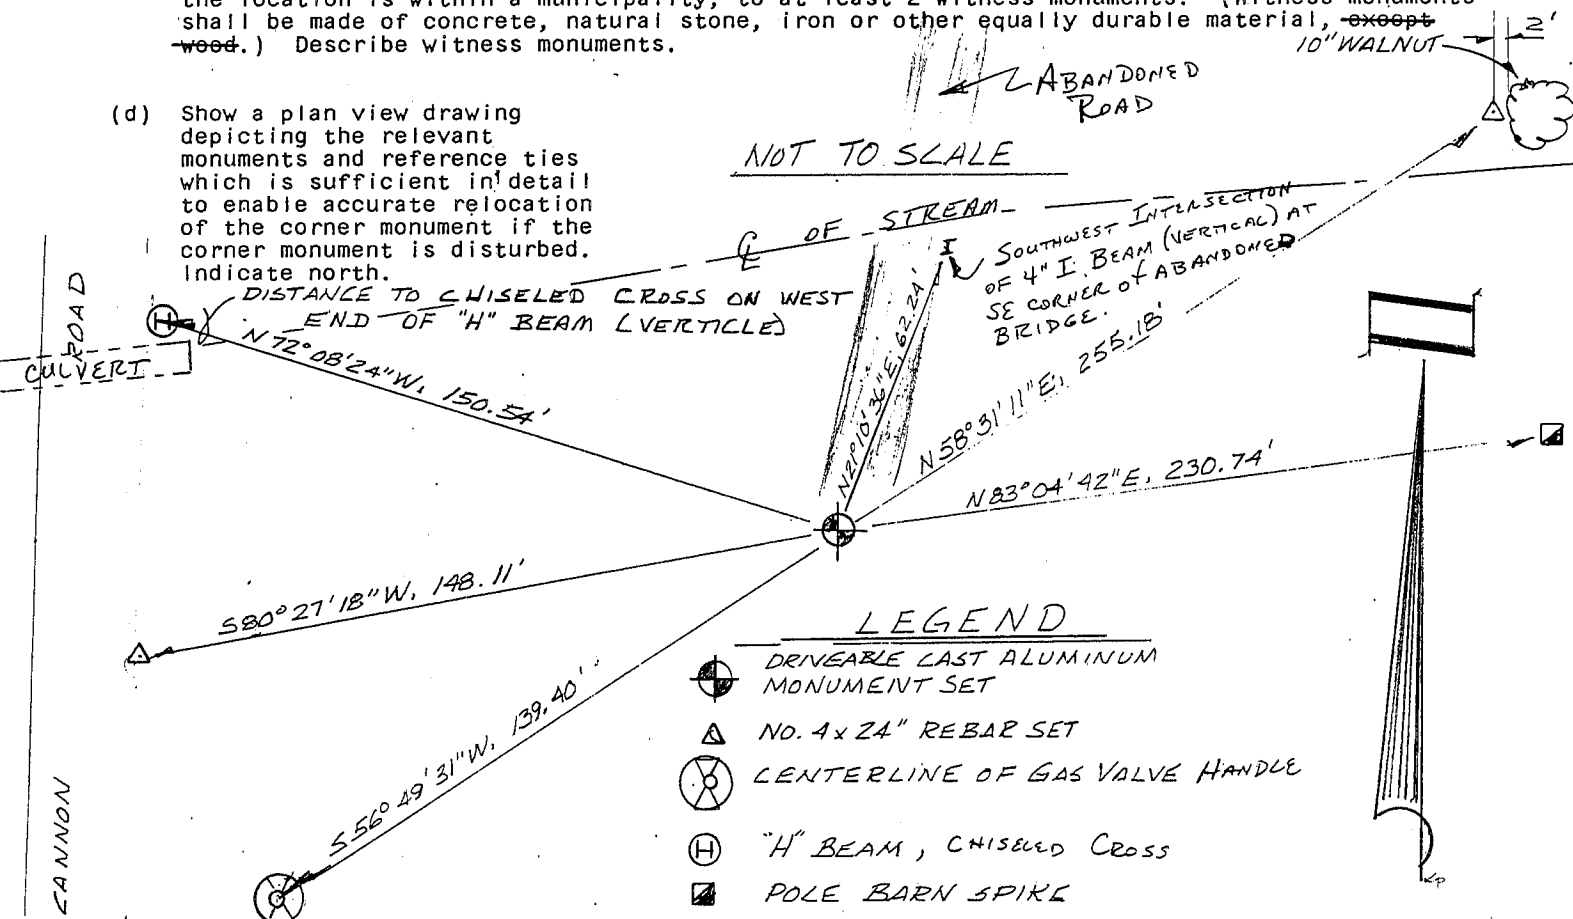 the location is within a municipality, to at least 2 witness monuments. (Witness monuments
shall be made of concrete, natural stone, iron or other equally durable material, except
wood.) Describe witness monuments.
2'
10" WALNUT
ABANDONED
ROAD
(d) Show a plan view drawing
depicting the relevant
monuments and reference ties
which is sufficient in detail
to enable accurate relocation
of the corner monument if the
corner monument is disturbed.
Indicate north.
NOT TO SCALE
℄ OF STREAM
SOUTHWEST INTERSECTION
OF 4" I. BEAM (VERTICAL) AT
SE CORNER of ABANDONED
BRIDGE.
DISTANCE TO CHISELED CROSS ON WEST
END OF "H" BEAM (VERTICLE)
ROAD
H
I
CULVERT
N 72° 08' 24" W, 150.54'
N21°10'36"E, 62.24'
N58°31'11"E, 255.18'
N83°04'42"E, 230.74'
S80°27'18"W, 148.11'
S56°49'31"W, 139.40'
CANNON
LEGEND
DRIVEABLE CAST ALUMINUM
MONUMENT SET
NO. 4 x 24" REBAR SET
CENTERLINE OF GAS VALVE HANDLE
H "H" BEAM, CHISELED CROSS
POLE BARN SPIKE